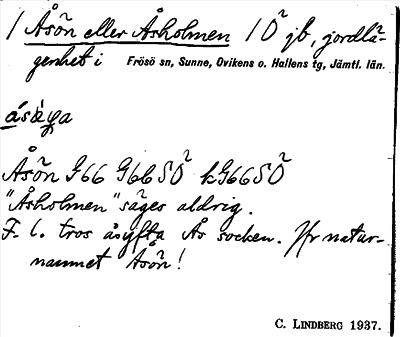 1 Åsön eller Åsholmen 1 Ö jb, jordlä-
genhet i Frösö sn, Sunne, Ovikens o. Hallens tg, Jämtl. län.
Åsön G66 G66SÖ kG66SÖ
"Åsholmen" säges aldrig.
F. l. tros åsyfta Ås socken. Jfr natur-
namnet Åsön!
C. LINDBERG 1937.